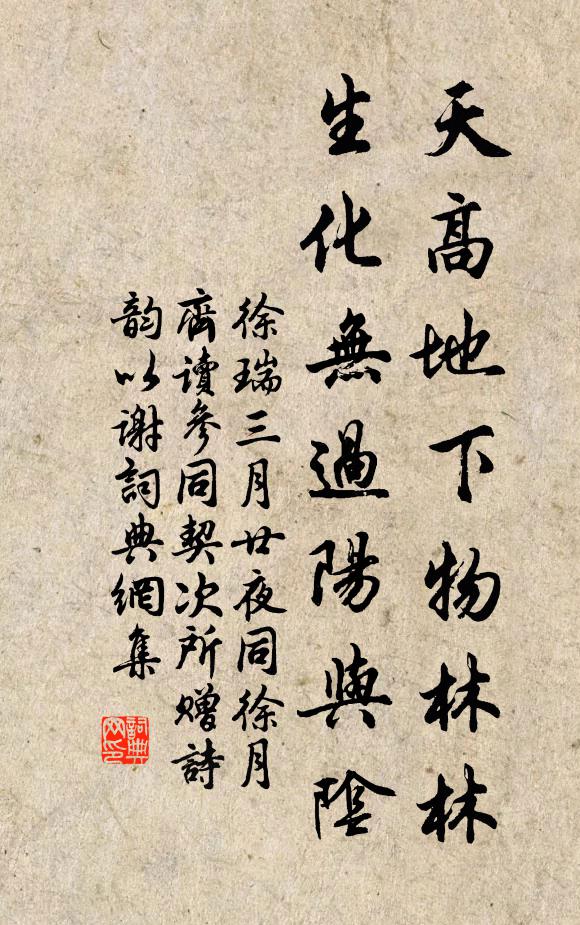 天高地下物林林
生化無過陽與陰
徐瑞三月廿夜同徐月
齊讀參同契次所贈詩
韵以谢詞典網集
詞典
网印